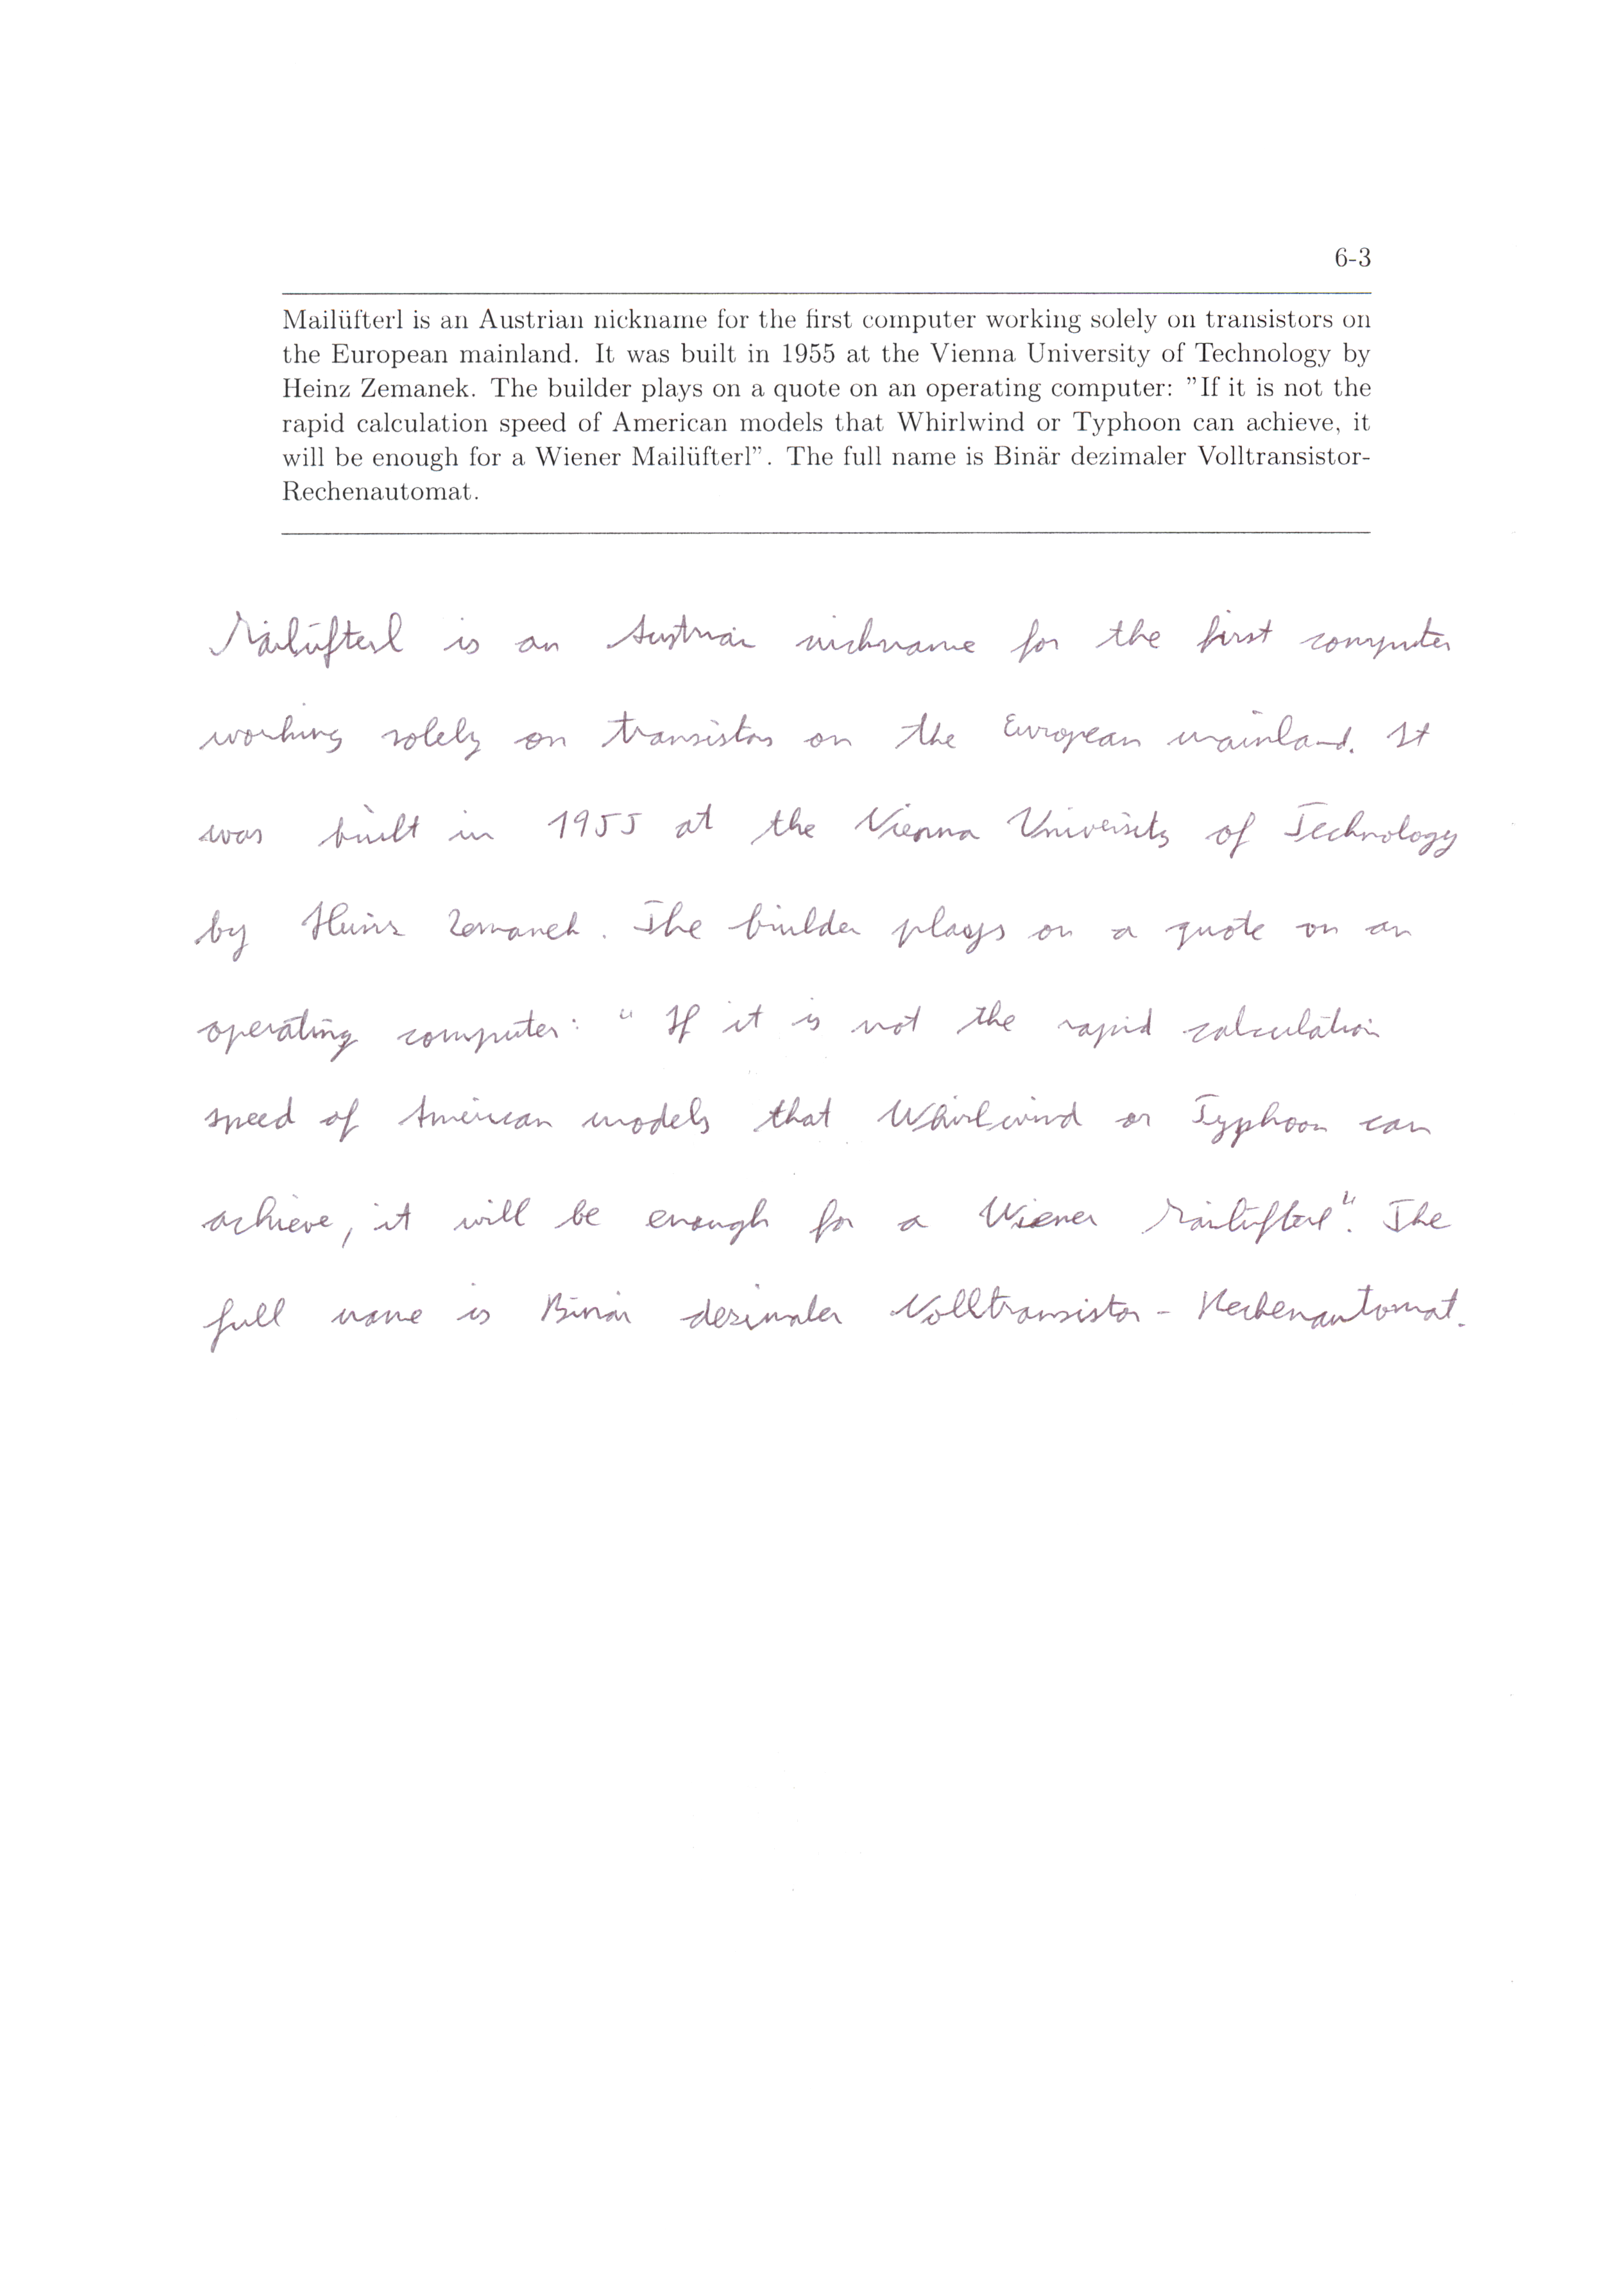 6-3
Mailüfterl is an Austrian nickname for the first computer working solely on transistors on
the European mainland. It was built in 1955 at the Vienna University of Technology by
Heinz Zemanek. The builder plays on a quote on an operating computer: ”If it is not the
rapid calculation speed of American models that Whirlwind or Typhoon can achieve, it
will be enough for a Wiener Mailüfterl”. The full name is Binär dezimaler Volltransistor-
Rechenautomat.
Mailüfterl is an Austrian nickname for the first computer
working solely on transistors on the European mainland. It
was built in 1955 at the Vienna University of Technology
by Heinz Zemanek. The builder plays on a quote on an
operating computer: "If it is not the rapid calculation
speed of American models that Whirlwind or Typhoon can
achieve, it will be enough for a Wiener Mailüfterl". The
full name is Binär dezimaler Volltransistor-Rechenautomat.